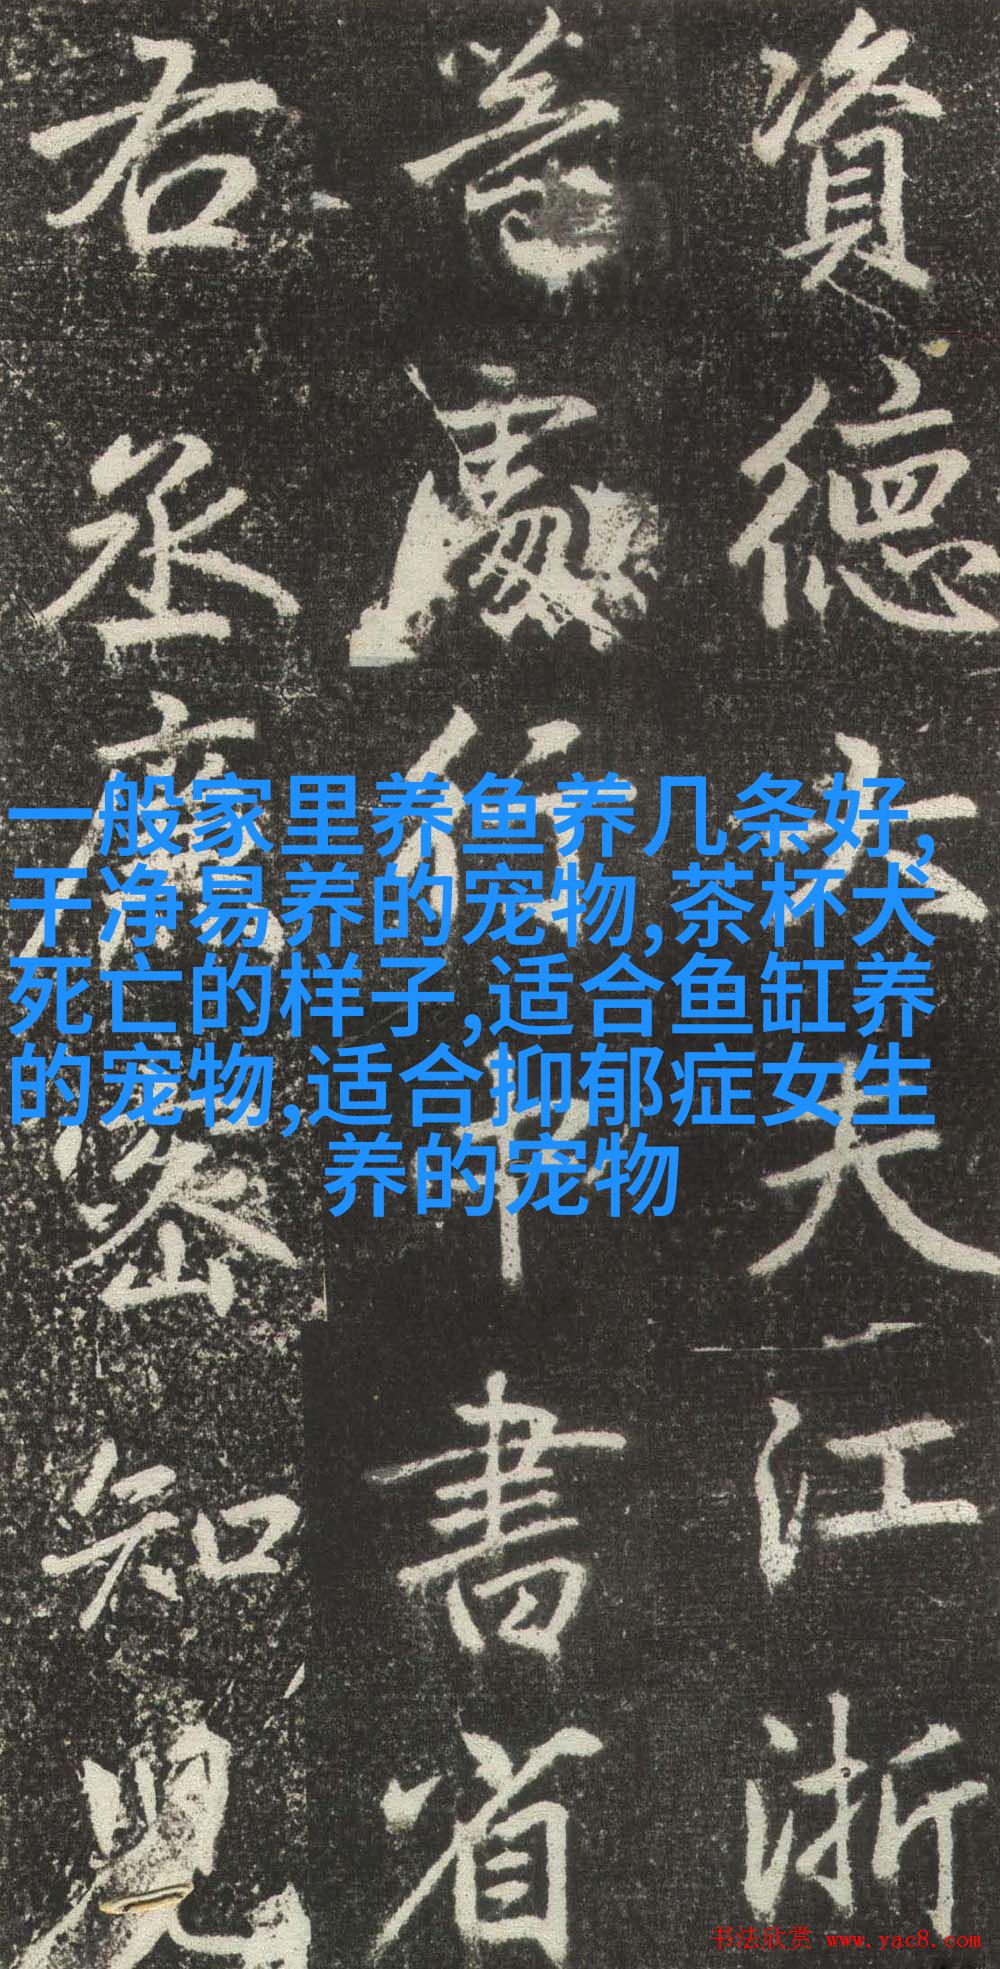 資德大夫江浙
等處行中書省
右丞廉密知兒
一般家里养鱼养几条好,
干净易养的宠物,茶杯犬
死亡的样子,适合鱼缸养
的宠物,适合抑郁症女生
养的宠物
书法欣赏 www.yac8.com